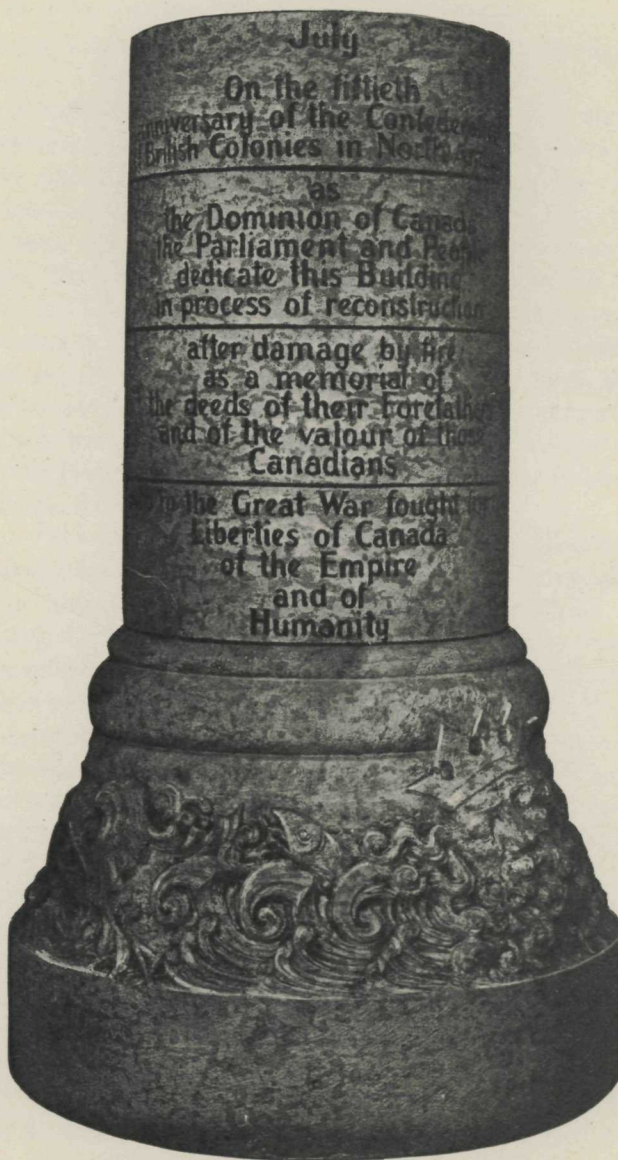 July
On the fiftieth
anniversary of the Confederation
British Colonies in North
as
the Dominion of Canada
the Parliament and People
dedicate this Building
in process of reconstruction
after damage by fire
as a memorial of
the deeds of their Forefathers
and of the valour of those
Canadians
the Great War fought for
Liberties of Canada
of the Empire
and of
Humanity